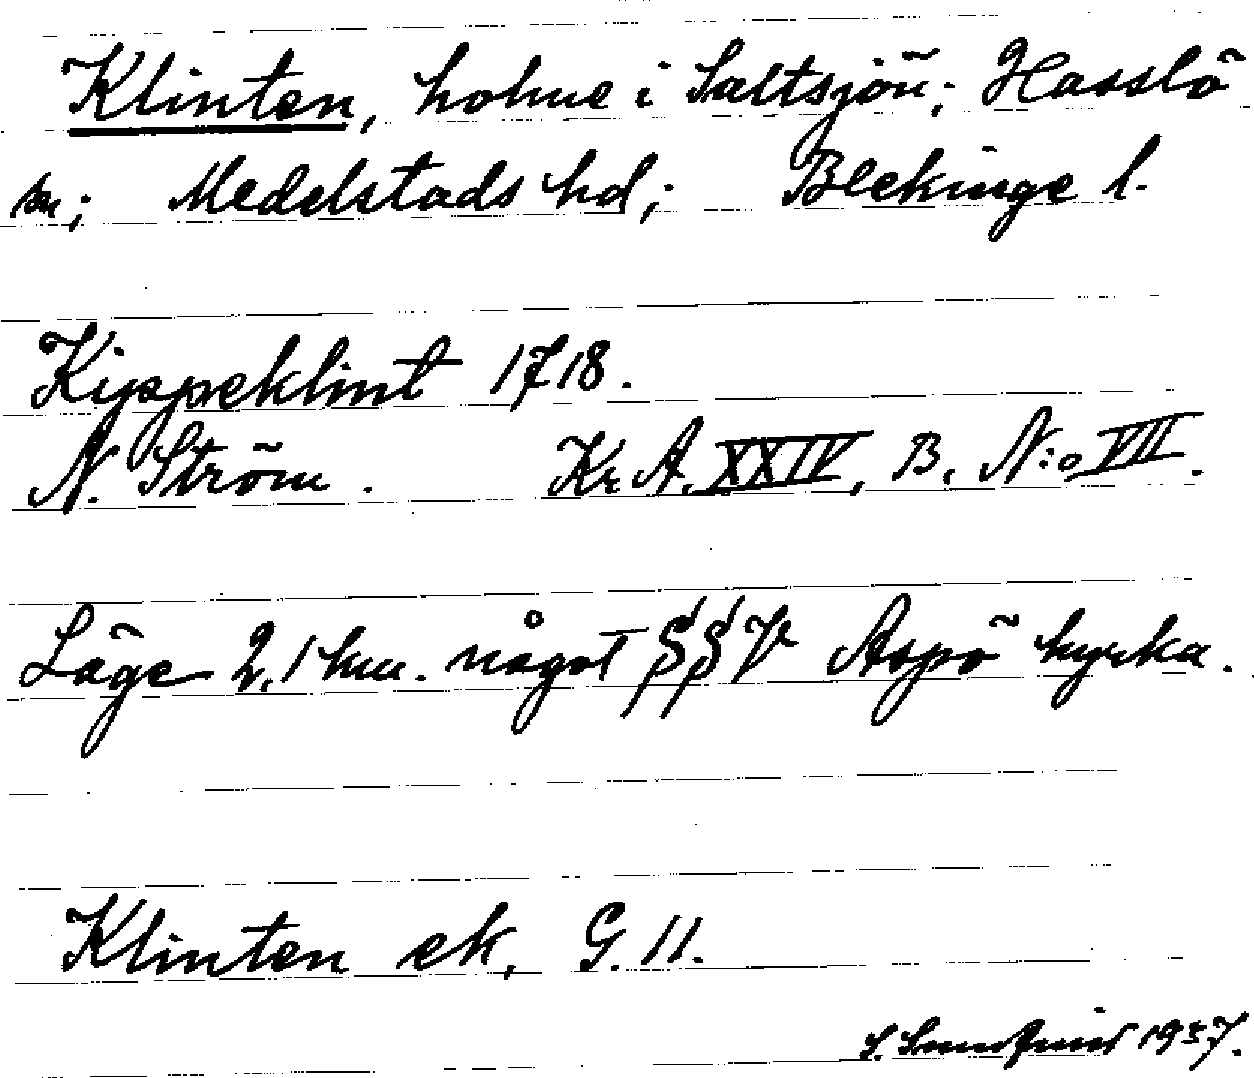 Klinten, holme i Saltsjön; Hasslö
sn; Medelstads hd; Blekinge l.
Kyppeklint 1718.
N. Ström. Kr. A. XXIV, B. N:o VII.
Läge 2,1 km. något SSV Aspö kyrka.
Klinten ek. G. 11.
S. 1937.